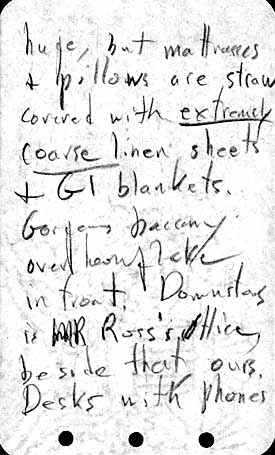 huge, but mattresses
+ pillows are straw
covered with extremely
coarse linen sheets
+ GI blankets.
Gorgeous balcony
over
in front. Downstairs
is Ross's office,
beside that ours.
Desks with phones